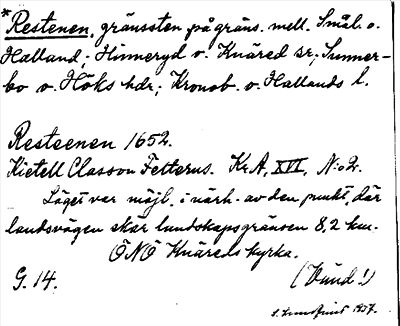 *Restenen, gränssten på gräns. mell. Smål. o.
Halland; Hinneryd o. Knäred sr; Sunner-
bo o. Höks hdr; Kronob. o. Hallands l.
Resteenen 1652.
Kietell Classon Felterus. Kr.A, XVI, N:o 2.
Läget var möjl. i närh. av den punkt, där
landsvägen skär landskapsgränsen 8,2 km.
ÖNÖ Knäreds kyrka.
G. 14.
(Vänd!)
S. Lundquist 1937.